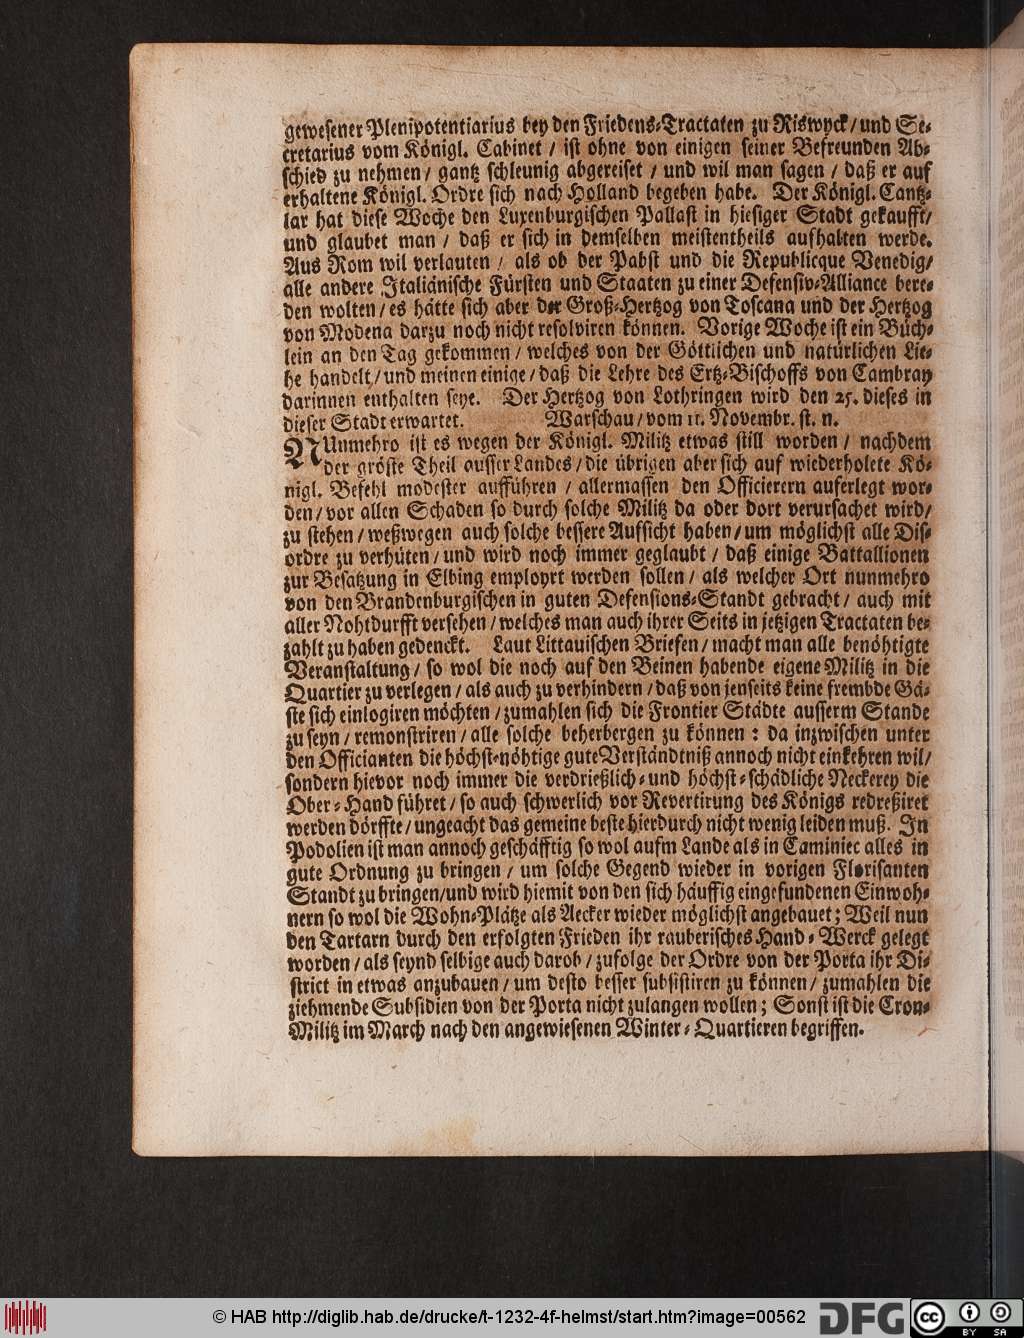 gewesener Plenipotentiarius bey den Friedens-Tractaten zu Riswyck / und Se-
cretarius vom Königl. Cabinet / ist ohne von einigen seiner Befreunden Ab-
schied zu nehmen / gantz schleunig abgereiset / und wil man sagen / daß er auf
erhaltene Königl. Ordre sich nach Holland begeben habe. Der Königl. Cantz-
lar hat diese Woche den Luxenburgischen Pallast in hiesiger Stadt gekaufft /
und glaubet man / daß er sich in demselben meistentheils aufhalten werde.
Aus Rom wil verlauten / als ob der Pabst und die Republicque Venedig /
alle andere Italiänische Fürsten und Staaten zu einer Defensiv-Alliance bere-
den wolten / es hätte sich aber der Groß-Hertzog von Toscana und der Hertzog
von Modena darzu noch nicht resolviren können. Vorige Woche ist ein Büch-
lein an den Tag gekommen / welches von der Göttlichen und natürlichen Lie-
be handelt / und meinen einige / daß die Lehre des Ertz-Bischoffs von Cambray
darinnen enthalten seye. Der Hertzog von Lothringen wird den 25. dieses in
dieser Stadt erwartet. Warschau / vom 11. Novembr. st. n.
NUnmehro ist es wegen der Königl. Militz etwas still worden / nachdem
der gröste Theil ausser Landes / die übrigen aber sich auf wiederholete Kö-
nigl. Befehl modester aufführen / allermassen den Officierern auferlegt wor-
den / vor allen Schaden so durch solche Militz da oder dort verursachet wird /
zu stehen / weßwegen auch solche bessere Aufsicht haben / um möglichst alle Dis-
ordre zu verhüten / und wird noch immer geglaubt / daß einige Battallionen
zur Besatzung in Elbing employrt werden sollen / als welcher Ort nunmehro
von den Brandenburgischen in guten Defensions-Standt gebracht / auch mit
aller Nohtdurfft versehen / welches man auch ihrer Seits in jetzigen Tractaten be-
zahlt zu haben gedenckt. Laut Littauischen Briefen / macht man alle benöhtigte
Veranstaltung / so wol die noch auf den Beinen habende eigene Militz in die
Quartier zu verlegen / als auch zu verhindern / daß von jenseits keine frembde Gä-
ste sich einlogiren möchten / zumahlen sich die Frontier Städte ausserm Stande
zu seyn / remonstriren / alle solche beherbergen zu können : da inzwischen unter
den Officianten die höchst-nöhtige gute Verständtniß annoch nicht einkehren wil /
sondern hievor noch immer die verdrießlich- und höchst-schädliche Neckerey die
Ober-Hand führet / so auch schwerlich vor Revertirung des Königs redreßiret
werden dörffte / ungeacht das gemeine beste hierdurch nicht wenig leiden muß. In
Podolien ist man annoch geschäfftig so wol aufm Lande als in Caminiec alles in
gute Ordnung zu bringen / um solche Gegend wieder in vorigen Florisanten
Standt zu bringen / und wird hiemit von den sich häuffig eingefundenen Einwoh-
nern so wol die Wohn-Plätze als Aecker wieder möglichst angebauet ; Weil nun
den Tartarn durch den erfolgten Frieden ihr rauberisches Hand-Werck gelegt
worden / als seynd selbige auch darob / zufolge der Ordre von der Porta ihr Di-
strict in etwas anzubauen / um desto besser subsistiren zu können / zumahlen die
ziehmende Subsidien von der Porta nicht zulangen wollen ; Sonst ist die Cron-
Militz im March nach den angewiesenen Winter-Quartieren begriffen.
© HAB http://diglib.hab.de/drucke/t-1232-4f-helmst/start.htm?image=00562 DFG cc BY SA